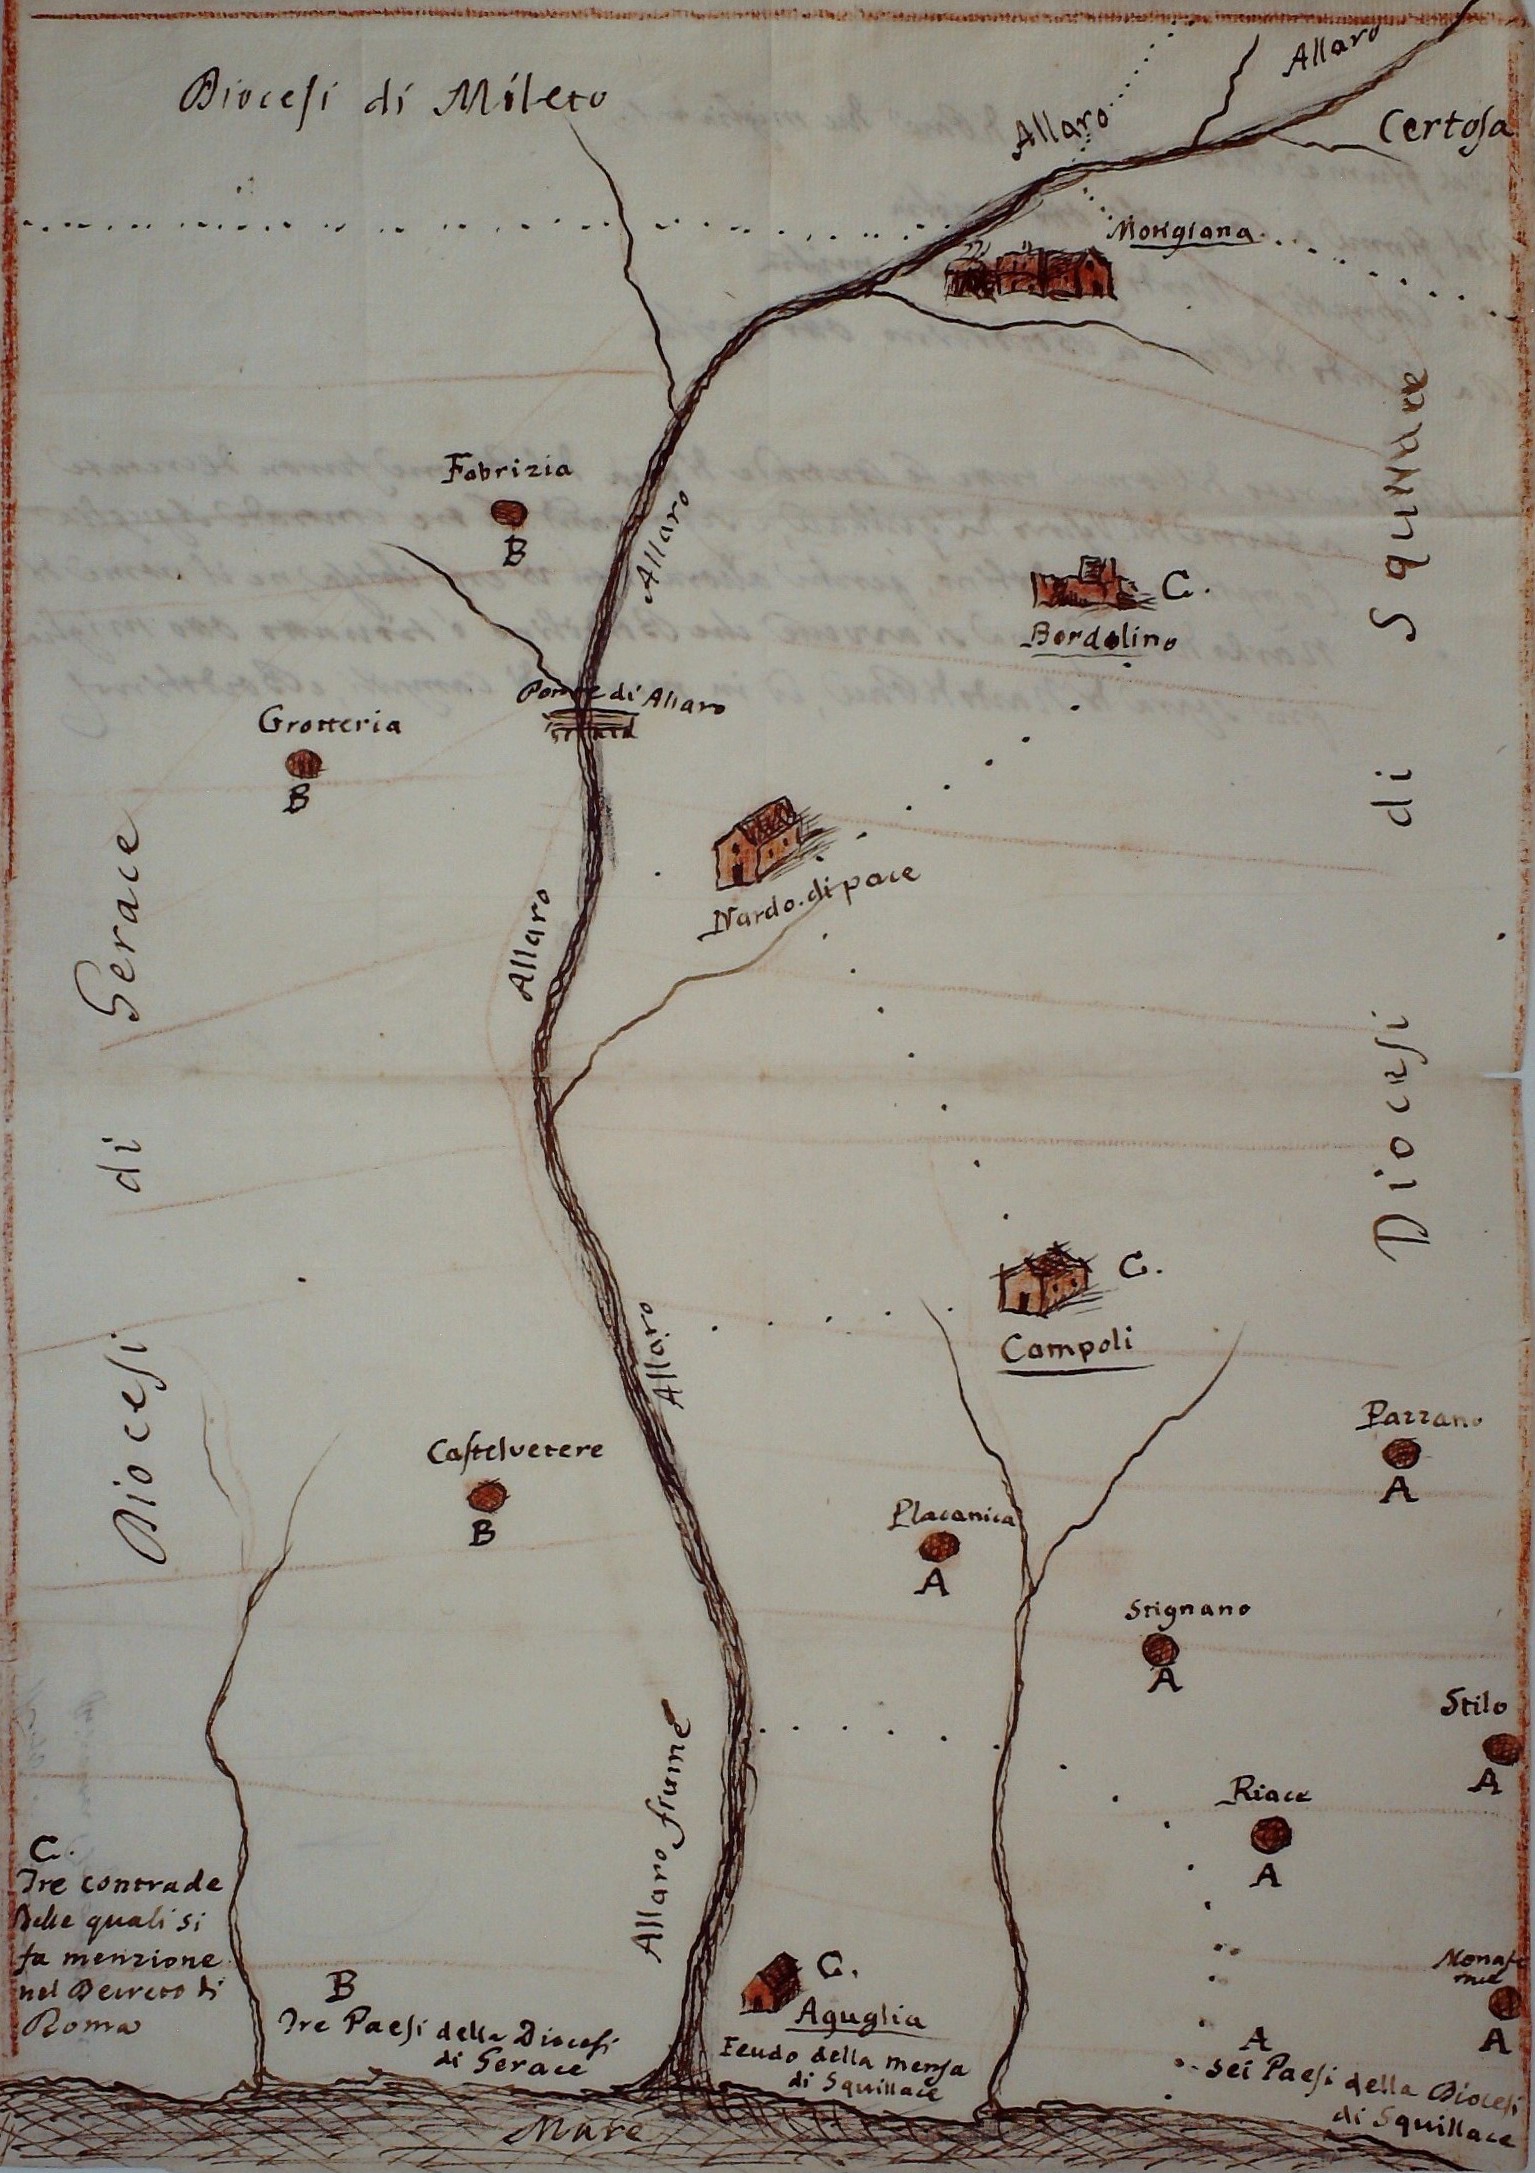 Diocesi di Mileto
Allaro
Allaro
Certosa
Mongiana
Fabrizia
B
Allaro
C.
Bordolino
Ponte di Allaro
Grotteria
B
Nardo.di pace
Allaro
Diocesi di Gerace
Diocesi di Squillace
C.
Campoli
Allaro
Castelvetere
B
Pazzano
A
Placanica
A
Stignano
A
Stilo
A
Riace
A
Allaro fiume
Monaste
race
A
C.
Tre contrade
Delle quali si
fa menzione
nel Decreto di
Roma
B
Tre Paesi della Diocesi
di Gerace
C.
Aguglia
Feudo della mensa
di Squillace
A
sei Paesi della Diocesi
di Squillace
Mare